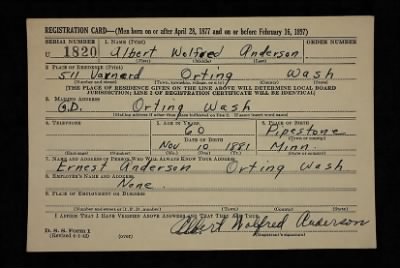 REGISTRATION CARD—(Men born on or after April 28, 1877 and on or before February 16, 1897)
SERIAL NUMBER 1. NAME (Print) ORDER NUMBER
U 1820 Albert Wolfred Anderson
(First) (Middle) (Last)
2. PLACE OF RESIDENCE (Print)
511 Varnard Orting Wash
(Number and street) (Town, township, village, or city) (County) (State)
[THE PLACE OF RESIDENCE GIVEN ON THE LINE ABOVE WILL DETERMINE LOCAL BOARD
JURISDICTION; LINE 2 OF REGISTRATION CERTIFICATE WILL BE IDENTICAL]
3. MAILING ADDRESS
G.D. Orting Wash
[Mailing address if other than place indicated on line 2. If same insert word same]
4. TELEPHONE 5. AGE IN YEARS 6. PLACE OF BIRTH
60 Pipestone
DATE OF BIRTH (Town or county)
Nov 10 1881 Minn.
(Exchange) (Number) (Mo.) (Day) (Yr.) (State or country)
7. NAME AND ADDRESS OF PERSON WHO WILL ALWAYS KNOW YOUR ADDRESS
Ernest Anderson Orting Wash
8. EMPLOYER'S NAME AND ADDRESS
None.
9. PLACE OF EMPLOYMENT OR BUSINESS
(Number and street or R. F. D. number) (Town) (County) (State)
I AFFIRM THAT I HAVE VERIFIED ABOVE ANSWERS AND THAT THEY ARE TRUE.
D. S. S. FORM 1
(Revised 4-1-42) (over)
Albert Wolfred Anderson
(Registrant's signature)